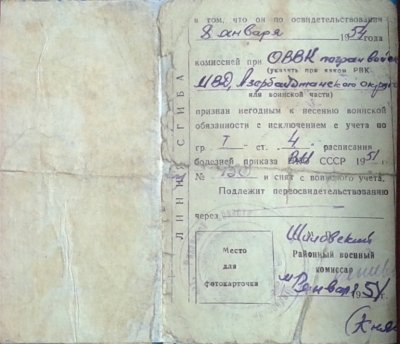 ЛИНИЯ СГИБА
в том, что он по освидетельствовании
8 января 1954 года
комиссией при ОВВК погранвойск
(указать при каком РВК
МВД, Азербайджанского округа
или воинской части)
признан негодным к несению воинской
обязанности с исключением с учета по
гр. I ст. 4 расписания
болезней приказа ВМ СССР 1951 г.
№ и снят с воинского учета.
Подлежит переосвидетельствованию
через
Место
для
фотокарточки
Районный военный
комиссар
января 1954